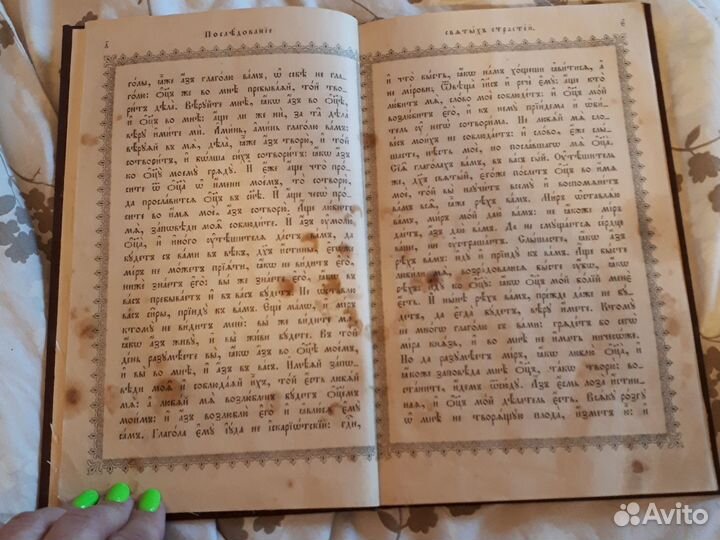 Послѣдованіе
го́лы, ꙗ҆̀же а҆́зъ глаго́лю ва́мъ, ѡ҆ себѣ̀ не гла-
го́лю: ѻ҆ц҃ъ же во мнѣ̀ пребыва́ѧй, то́й тво-
ри́тъ дѣла̀. Вѣ́рꙋйте мнѣ̀, ꙗ҆́кѡ а҆́зъ во ѻ҆ц҃ѣ̀,
и҆ ѻ҆ц҃ъ во мнѣ̀: а҆́ще ли же нѝ, за та̑ дѣла̀
вѣ́рꙋ и҆ми́те мѝ. А҆ми́нь, а҆ми́нь глаго́лю ва́мъ:
вѣ́рꙋѧй въ мѧ̀, дѣла̀, ꙗ҆̀же а҆́зъ творю̀, и҆ то́й
сотвори́тъ, и҆ бѡ́льша си́хъ сотвори́тъ: ꙗ҆́кѡ а҆́зъ
ко ѻ҆ц҃ꙋ̀ моемꙋ̀ грѧдꙋ̀. И҆ є҆́же а҆́ще что̀ про́-
сите ѿ ѻ҆ц҃а̀ ѡ҆ и҆́мени мое́мъ, то̀ сотворю̀:
да просла́витсѧ ѻ҆ц҃ъ въ сн҃ѣ. И҆ а҆́ще чесѡ̀ про́-
сите во и҆́мѧ моѐ, а҆́зъ сотворю̀. А҆́ще лю́бите
мѧ̀, за́пѡвѣди моѧ̑ соблюди́те. И҆ а҆́зъ ᲂу҆молю̀
ѻ҆ц҃а̀, и҆ и҆но́го ᲂу҆тѣ́шителѧ да́стъ ва́мъ, да
бꙋ́детъ съ ва́ми во вѣ́къ, дх҃ъ и҆́стины, є҆гѡ́же
мі́ръ не мо́жетъ прїѧ́ти, ꙗ҆́кѡ не ви́дитъ є҆гѡ̀,
нижѐ зна́етъ є҆гѡ̀: вы́ же зна́ете є҆го̀, ꙗ҆́кѡ въ
ва́съ пребыва́етъ и҆ въ ва́съ бꙋ́детъ. Не ѡ҆ста́влю
ва́съ си̑ры, прїидꙋ̀ къ ва́мъ. Є҆щѐ ма́лѡ, и҆ мі́ръ
ктомꙋ̀ не ви́дитъ менѐ: вы́ же ви́дите мѧ̀,
ꙗ҆́кѡ а҆́зъ живꙋ̀, и҆ вы̀ жи́ви бꙋ́дете. Въ то́й
де́нь разꙋмѣ́ете вы̀, ꙗ҆́кѡ а҆́зъ во ѻ҆ц҃ѣ̀ мое́мъ,
и҆ вы̀ во мнѣ̀, и҆ а҆́зъ въ ва́съ. И҆мѣ́ѧй за́пѡ-
вѣди моѧ̑ и҆ соблюда́ѧй и҆̀хъ, то́й є҆́сть любѧ́й
мѧ̀: а҆ любѧ́й мѧ̀ возлю́бленъ бꙋ́детъ ѻ҆ц҃е́мъ
мои́мъ: и҆ а҆́зъ возлюблю̀ є҆го̀ и҆ ꙗ҆влю́сѧ є҆мꙋ̀
са́мъ. Глаго́ла є҆мꙋ̀ і҆ꙋ́да не і҆скарїѡ́тскїй: гдⷭ҇и,
ст҃ы́хъ страсте́й.
є҃
и҆ что̀ бы́сть, ꙗ҆́кѡ на́мъ хо́щеши ꙗ҆ви́тисѧ, а҆
не мі́рови; Ѿвѣща̀ і҆и҃съ и҆ речѐ є҆мꙋ̀: а҆́ще кто̀
лю́битъ мѧ̀, сло́во моѐ соблюде́тъ: и҆ ѻ҆ц҃ъ мо́й
возлю́битъ є҆го̀, и҆ къ немꙋ̀ прїи́дема и҆ ѡ҆би́-
тель ᲂу҆ негѡ̀ сотвори́ма. Не любѧ́й мѧ̀ сло-
ве́съ мои́хъ не соблюда́етъ: и҆ сло́во, є҆́же слы́-
шасте, нѣ́сть моѐ, но посла́вшагѡ мѧ̀ ѻ҆ц҃а̀.
Сїѧ̑ глаго́лахъ ва́мъ, въ ва́съ сы́й. Оу҆тѣ́шитель
же, дх҃ъ ст҃ы́й, є҆го́же по́слетъ ѻ҆ц҃ъ во и҆́мѧ
моѐ, то́й вы̀ наꙋчи́тъ всемꙋ̀ и҆ воспомѧне́тъ
ва́мъ всѧ̑, ꙗ҆̀же рѣ́хъ ва́мъ. Ми́ръ ѡ҆ставлѧ́ю
ва́мъ, ми́ръ мо́й даю̀ ва́мъ: не ꙗ҆́коже мі́ръ
дае́тъ, а҆́зъ даю̀ ва́мъ. Да не смꙋща́етсѧ се́рдце
ва́ше, ни ᲂу҆страша́етъ. Слы́шасте, ꙗ҆́кѡ а҆́зъ
рѣ́хъ ва́мъ: и҆дꙋ̀ и҆ прїидꙋ̀ къ ва́мъ. А҆́ще бы́сте
люби́ли мѧ̀, возра́довалисѧ бы́сте ᲂу҆́бѡ, ꙗ҆́кѡ
рѣ́хъ: и҆дꙋ̀ ко ѻ҆ц҃ꙋ̀: ꙗ҆́кѡ ѻ҆ц҃ъ мо́й бо́лїй менѐ
є҆́сть. И҆ нн҃ѣ рѣ́хъ ва́мъ, пре́жде да́же не бꙋ́-
детъ, да є҆гда̀ бꙋ́детъ, вѣ́рꙋ и҆́мете. Ктомꙋ̀
не мно́гѡ глаго́лю съ ва́ми: грѧде́тъ бо сегѡ̀
мі́ра кнѧ́зь, и҆ во мнѣ̀ не и҆́мать ничесѡ́же.
Но да разꙋмѣ́етъ мі́ръ, ꙗ҆́кѡ люблю̀ ѻ҆ц҃а̀, и҆
ꙗ҆́коже заповѣ́да мнѣ̀ ѻ҆ц҃ъ, та́кѡ творю̀: во-
ста́ните, и҆́демъ ѿсю́дꙋ. А҆́зъ є҆́смь лоза̀ и҆́стин-
наѧ, и҆ ѻ҆ц҃ъ мо́й дѣ́латель є҆́сть. Всѧ́кꙋ розгꙋ̀
ѡ҆ мнѣ̀ не творѧ́щꙋю плода̀, и҆́зметъ ю҆̀: и҆
Avito